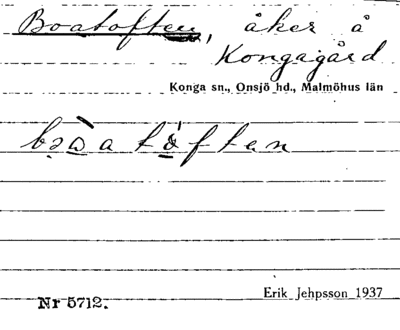 Boatoften, åker å
Kongagård
Konga sn., Onsjö hd., Malmöhus län
Erik Jehpsson 1937
Nr 5712.